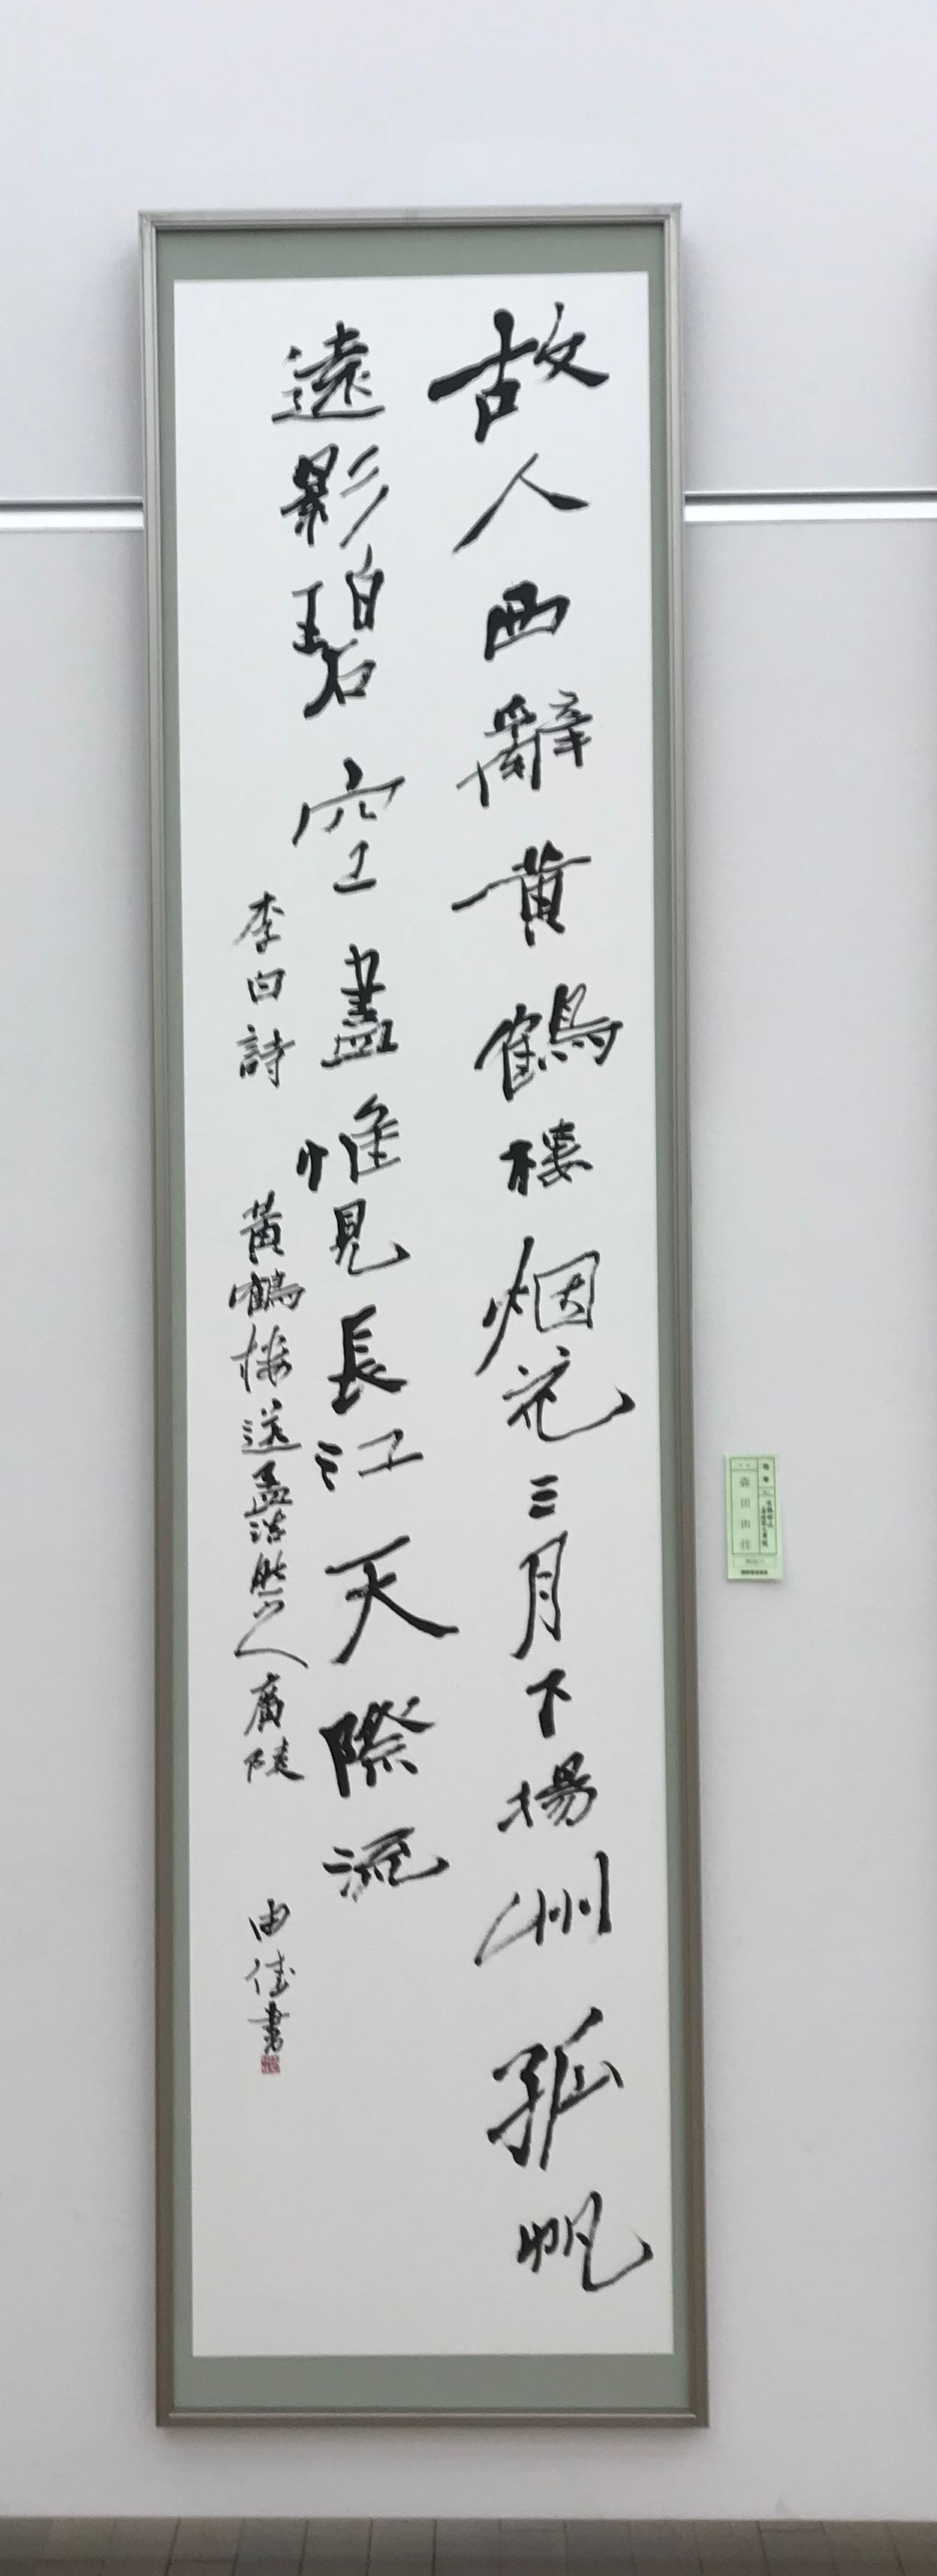 故人西辭黄鶴樓烟花三月下揚洲孤帆
遠影碧空盡惟見長江天際流
李白詩 黄鶴樓送孟浩然之廣陵 由佳書
森田由佳